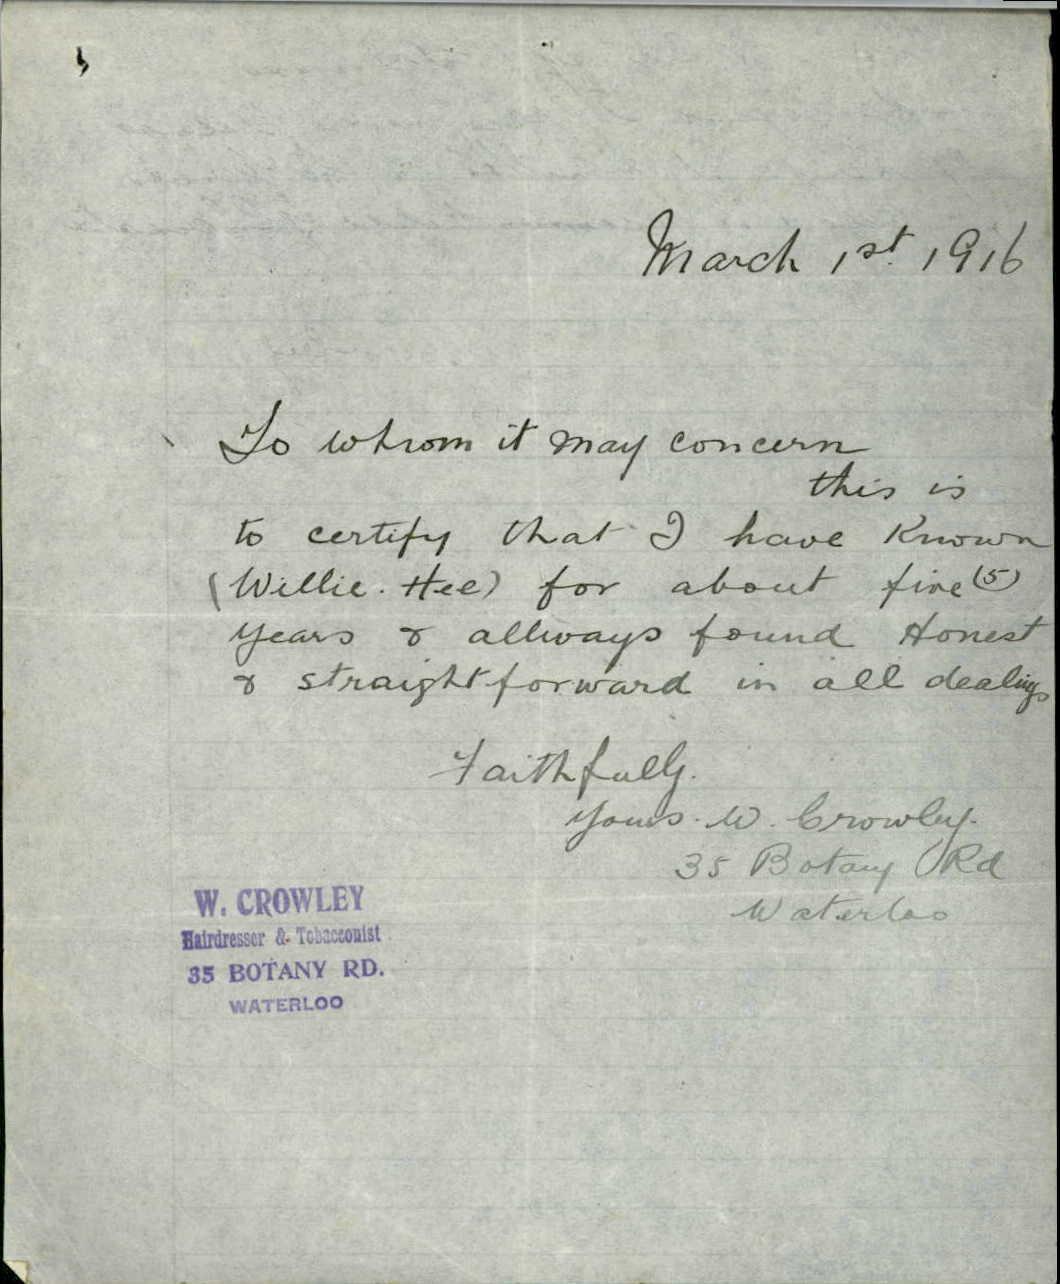 March 1st. 1916
To whom it may concern
this is
to certify that I have Known
(Willie. Hee) for about five (5)
years & allways found Honest
& straightforward in all dealings
Faithfully.
yours. W. Crowley.
35 Botany Rd
Waterloo
W. CROWLEY
Hairdresser & Tobacconist
35 BOTANY RD.
WATERLOO